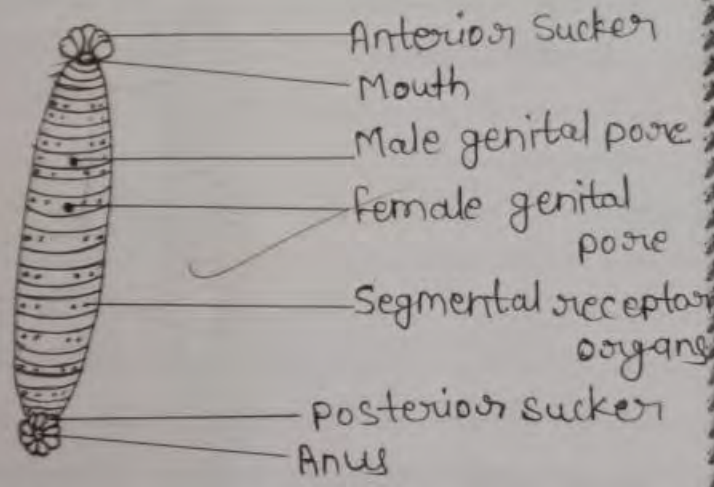 Anterior Sucker
Mouth
Male genital pore
female genital
pore
Segmental receptor
organs
posterior sucker
Anus